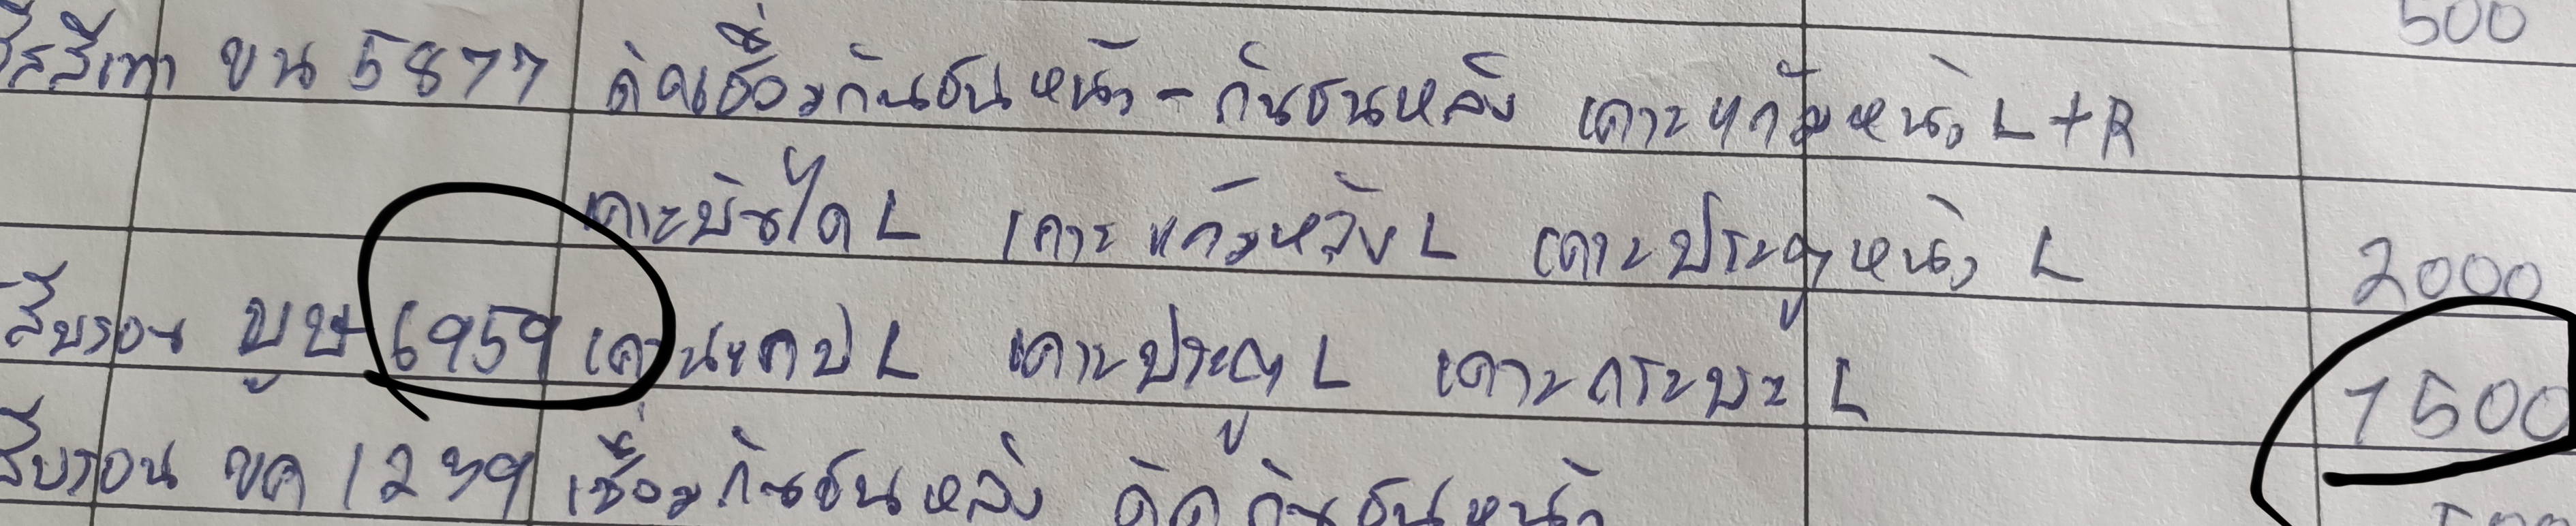 500
สีเทา ขน 5877 ดัดเชื่อมกันชนหน้า - กันชนหลัง เคาะแก้มหน้า L+R
เคาะบันได L เคาะแก้มหลัง L เคาะประตูหน้า L 2000
สีบรอน บษ 6959 L เคาะประตู L เคาะกระบะ L 1500
สีบรอน ขค 1239 เชื่อมกันชนหลัง ดัดกันชนหน้า